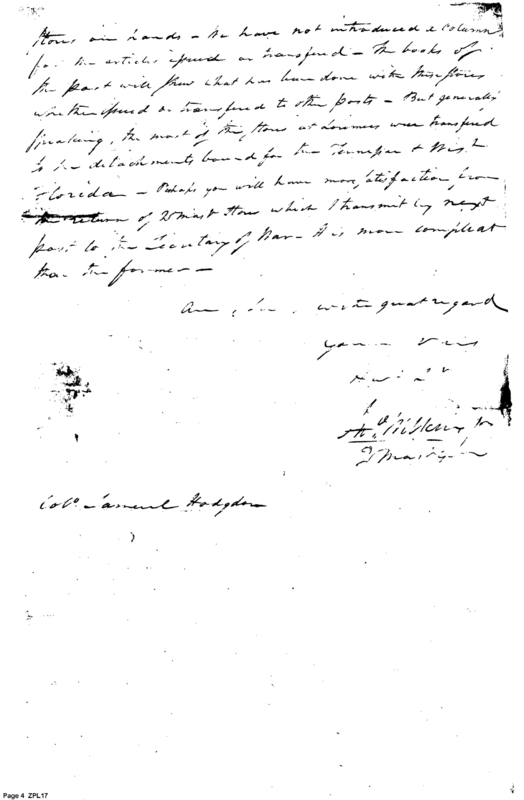 Stores on hands - We have not introduced a column
for the articles issued or transferd - the books of
the past will shew what has been done with these stores
whether issued or transfered to other posts - But generally
speaking, the most of the stores at were transfered
to the detachments bound for the Tennessee & West
Florida - Perhaps you will have more satisfaction from
the return of Qr Mast Stores which I transmit by next
post to the Secretary of War - It is more compleat
than the former -
Am, Sir, with great regard
Your
Col. Samuel Hodgdon
Page 4 ZPL17